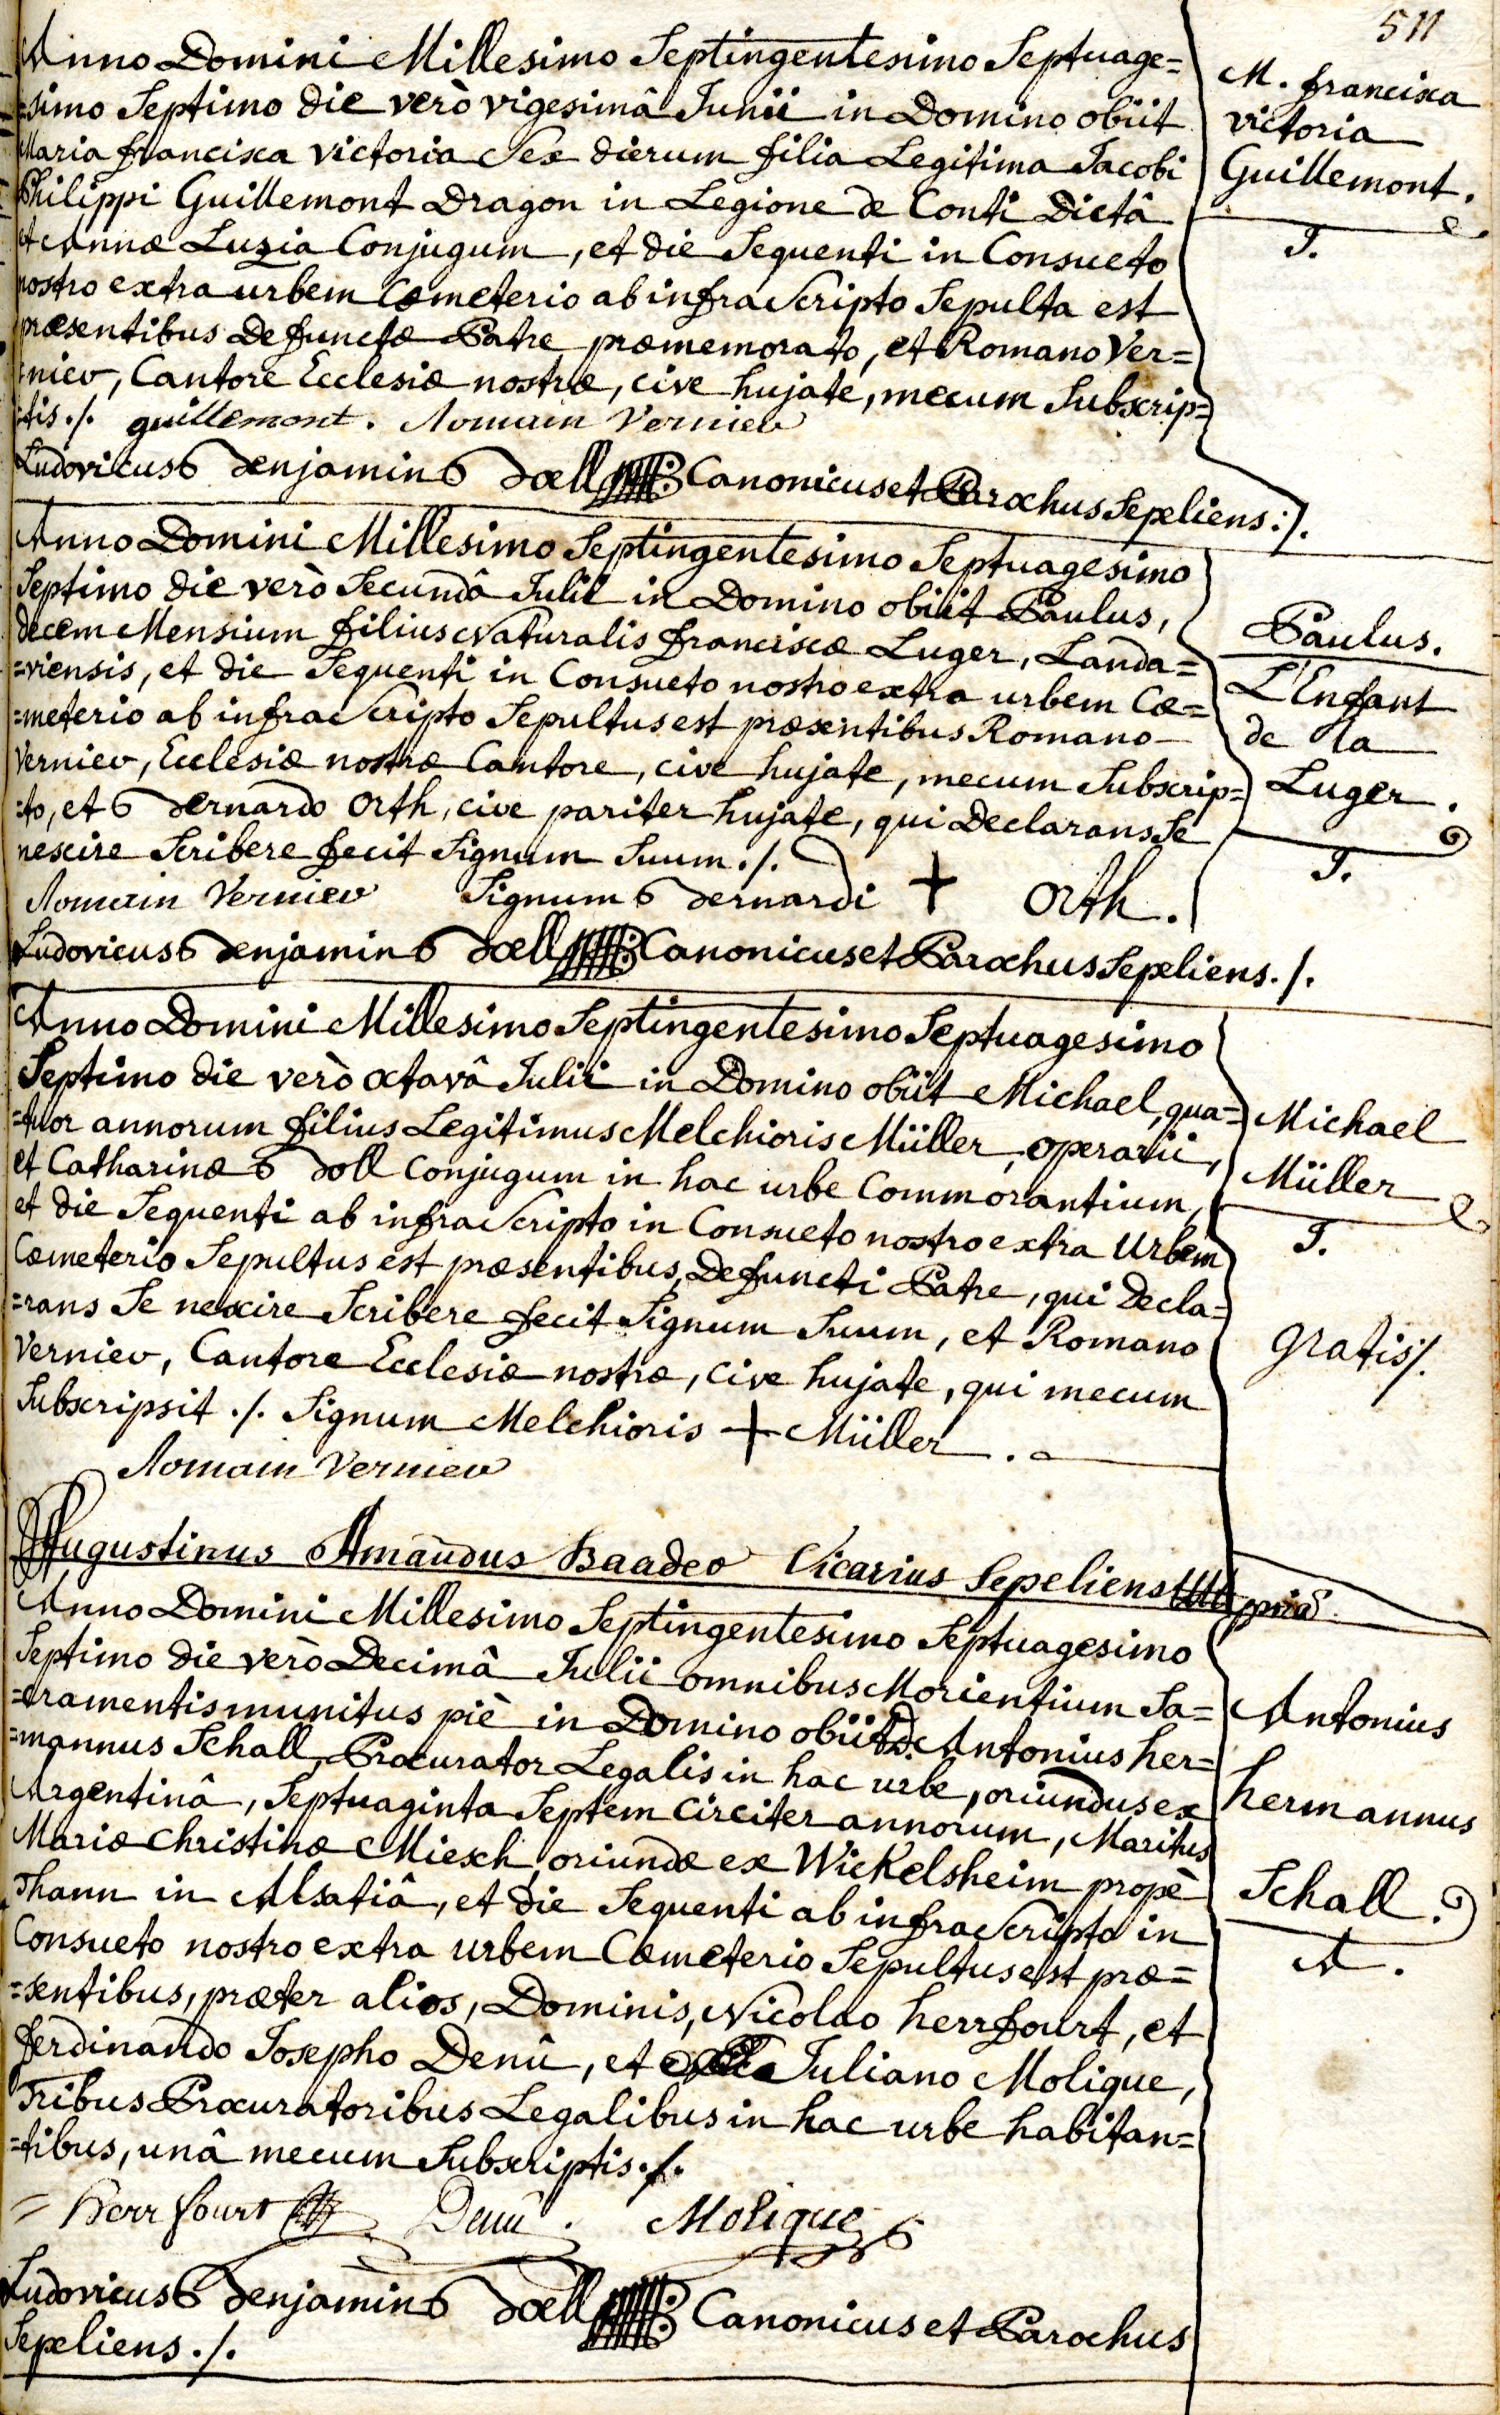 511
Anno Domini Millesimo Septingentesimo Septuage=
=simo Septimo die verò vigesimâ Junii in Domino obiit
Maria francisca victoria Sex dierum filia Legitima Jacobi
Philippi Guillemont Dragon in Legione de Conti Dictâ
et Annæ Luzia Conjugum, et die Sequenti in Consueto
nostro extra urbem Cœmeterio ab infra Scripto Sepulta est
præsentibus Defunctæ Patre præmemorato, et Romano Ver=
=nier, Cantore Ecclesiæ nostræ, cive hujate, mecum Subscrip=
=tis ./. guillemont. Romain Vernier
Ludovicus Benjamin Boell Canonicus et Parochus Sepeliens :/.
M. francisca
victoria
Guillemont.
J.
Anno Domini Millesimo Septingentesimo Septuagesimo
Septimo die verò Secundâ Julii in Domino obiit Paulus,
decem Mensium filius Naturalis franciscæ Luger, Landa=
=viensis, et die Sequenti in Consueto nostro extra urbem Cœ=
=meterio ab infra Scripto Sepultus est præsentibus Romano
Vernier, Ecclesiæ nostræ Cantore, cive hujate, mecum Subscrip=
=to, et Bernardo Orth, cive pariter hujate, qui Declarans Se
nescire Scribere fecit Signum Suum ./.
Romain Vernier Signum Bernardi + Orth.
Ludovicus Benjamin Boell Canonicus et Parochus Sepeliens ./.
Paulus.
L'Enfant
de la
Luger.
J.
Anno Domini Millesimo Septingentesimo Septuagesimo
Septimo die verò octavâ Julii in Domino obiit Michael, qua=
=tuor annorum filius Legitimus Melchioris Müller, operarii,
et Catharinæ Boll Conjugum in hac urbe Commorantium,
et die Sequenti ab infra Scripto in Consueto nostro extra Urbem
Cœmeterio Sepultus est præsentibus, Defuncti Patre, qui Decla=
=rans Se nescire Scribere fecit Signum Suum, et Romano
Vernier, Cantore Ecclesiæ nostræ, Cive hujate, qui mecum
Subscripsit ./. Signum Melchioris + Müller.
Romain Vernier
Augustinus Amandus Baader Vicarius Sepeliens
Michael
Müller
J.
Gratis ./.
Anno Domini Millesimo Septingentesimo Septuagesimo
Septimo die verò Decimâ Julii omnibus Morientium Sa=
=cramentis munitus piè in Domino obiit D. Antonius her=
=mannus Schall, Procurator Legalis in hac urbe, oriundus ex
Argentinâ, Septuaginta Septem Circiter annorum, Maritus
Mariæ Christinæ Miesch, oriundæ ex Wickelsheim propè
Thann in Alsatiâ, et die Sequenti ab infra Scripto in
Consueto nostro extra urbem Cœmeterio Sepultus est præ=
=sentibus, præter alios, Dominis, Nicolao herrfourt, et
ferdinando Josepho Denû, et Juliano Molique,
Tribus Procuratoribus Legalibus in hac urbe habitan=
=tibus, unâ mecum Subscriptis ./.
Herrfourt Denû. Molique
Ludovicus Benjamin Boell Canonicus et Parochus
Sepeliens ./.
Antonius
hermannus
Schall.
A.